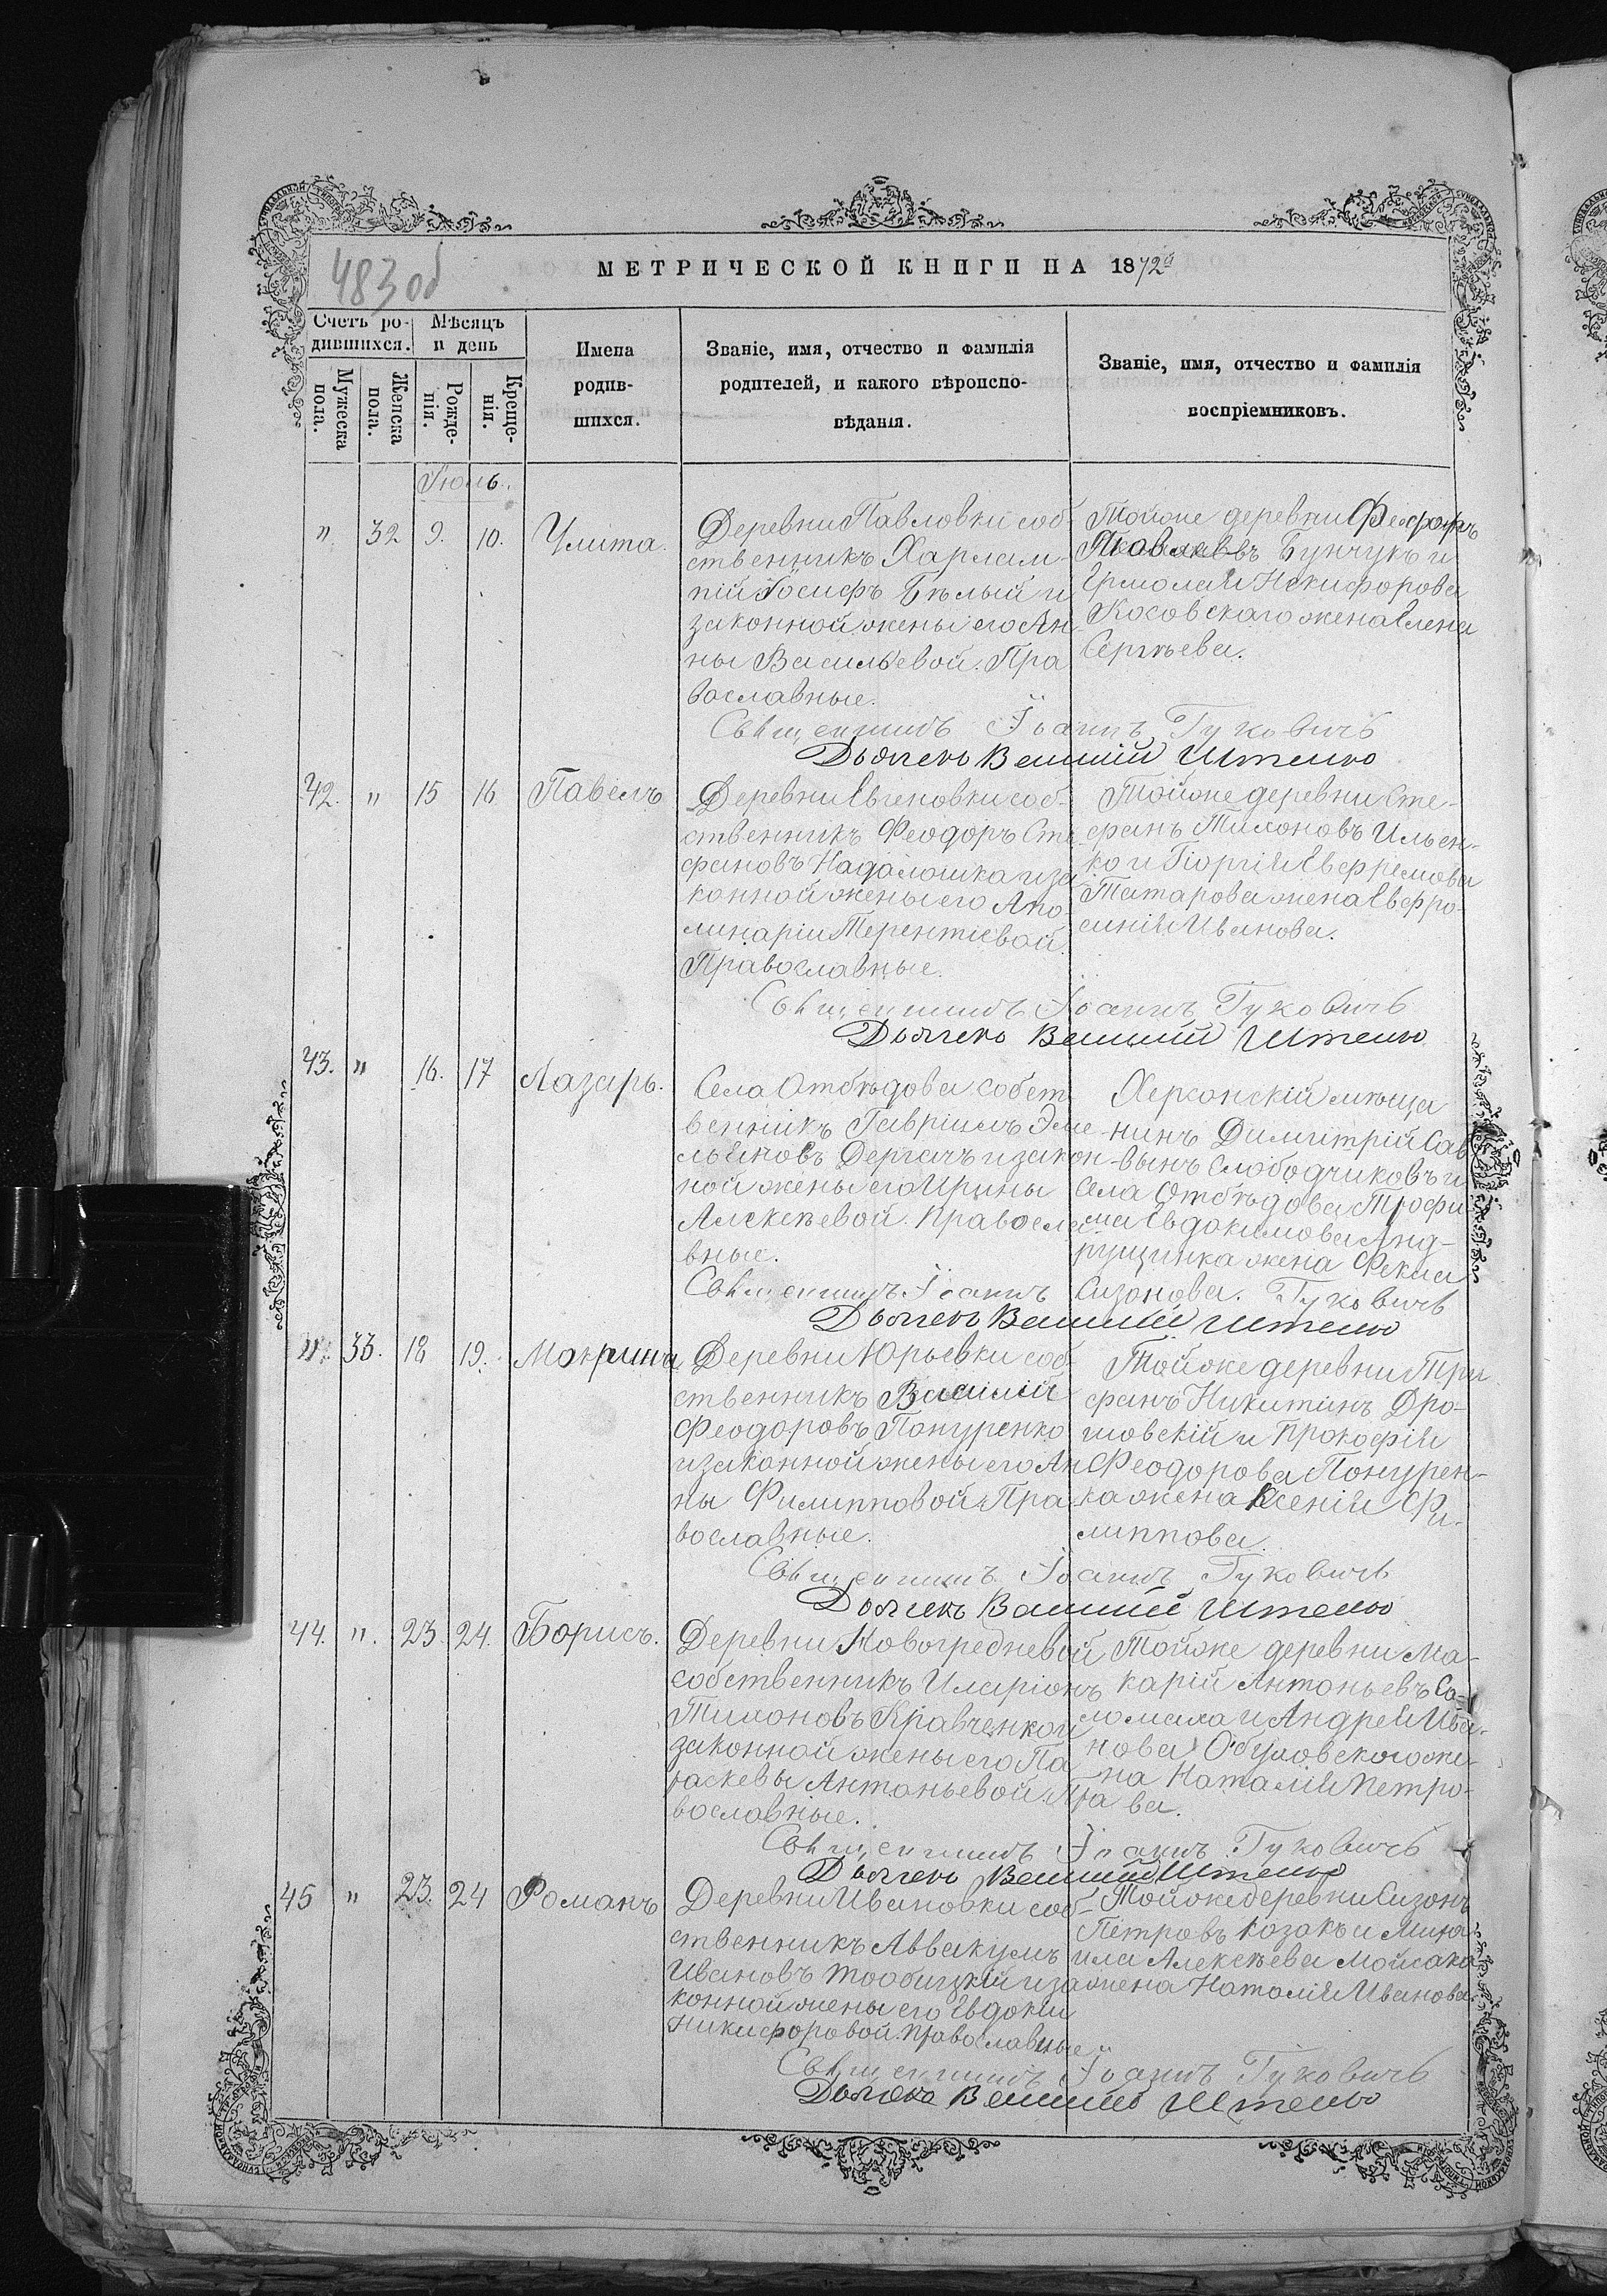 483 об
МЕТРИЧЕСКОЙ КНИГИ НА 1872й
Счетъ ро-
дившихся.
Мѣсяцъ
и день
Имена
родив-
шихся.
Званіе, имя, отчество и фамилія
родителей, и какого вѣроиспо-
вѣданія.
Званіе, имя, отчество и фамилія
воспріемниковъ.
Мужеска
пола.
Женска
пола.
Рожде-
нія.
Креще-
нія.
Іюль.
" 32 9. 10. Улита.
Деревни Павловки соб-
ственникъ Харлам-
пій Іосифъ Бѣлый и
законной жены его Ан-
ны Васильевой. Пра
вославные.
Тойже деревни
Яковлевъ Бунчукъ и
Ермолая Никифорова
Косовскаго жена Елена
Сергѣева.
Священникъ Іоаннъ Гуковичъ
Дьячекъ Василій
42. " 15 16 Павелъ
Деревни Евгеновки соб-
ственникъ Феодоръ Сте
фановъ Надалошка и за
конной жены его Апо-
линаріи Терентіевой
Православные.
Тойже деревни Сте-
фанъ Тихоновъ Ильен-
ко и Гіоргія Евфремова
Татарова жена Евфро-
синія Иванова.
Священникъ Іоаннъ Гуковичъ
Дьячекъ Василій
43. " 16. 17 Лазарь.
Села Отбѣдова собст
венникъ Гавріилъ Эме
льяновъ Дергачъ и закон
ной жены его Ирины
Алексѣевой. Правосла
вные.
Херсонскій мѣща
-нинъ Димитрій Сав
-вынъ Слободчиковъ и
Села Отбѣдова Трофи
ма Евдокимова Анд-
рущинка жена Фекла
Сизонова.
Священникъ Іоаннъ Гуковичъ
Дьячекъ Василій
". 33. 18 19. Макрина
Деревни Юрьевки соб
ственникъ Василій
Феодоровъ Понуренко
и законной жены его Ан
ны Филипповой Пра
вославные.
Тойже деревни Три
фанъ Никитинъ Дро-
шовскій и Прокофія
Феодорова Понурен-
ка жена Ксенія Фи-
липпова.
Священникъ Іоаннъ Гуковичъ
Дьячекъ Василій
44. ". 23. 24. Борисъ.
Деревни Новогредневой
собственникъ Иларіонъ
Тихоновъ Кравченко и
законной жены его Па
раскевы Антоньевой. Пра
вославные.
Тойже деревни Ма-
карій Антоньевъ Со-
ломаха и Андрея Ива-
нова Обуховского же-
на Наталія Петро-
ва.
Священникъ Іоаннъ Гуковичъ
Дьячекъ Василій
45 " 23. 24 Романъ
Деревни Ивановки соб-
ственникъ Аввакумъ
Ивановъ и за
конной жены его Евдокіи
Никифоровой. Православные
Тойже деревни Сизонъ
Петровъ Козакъ и Миха
ила Алексѣева Мойсака
жена Наталія Иванова.
Священникъ Іоаннъ Гуковичъ
Дьячекъ Василій